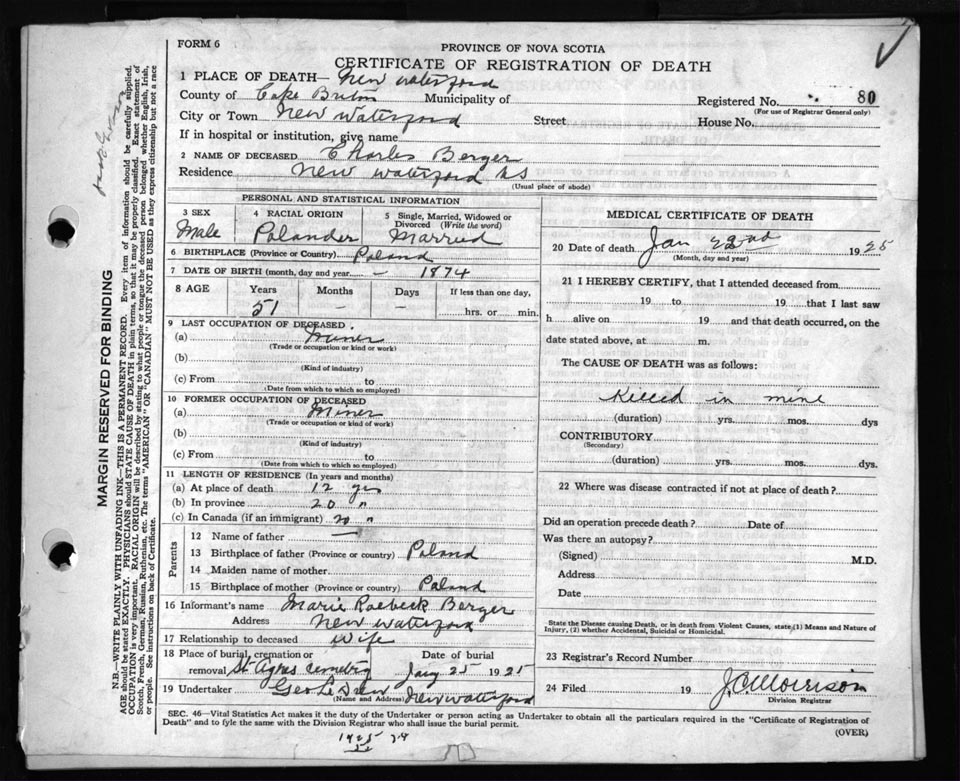 FORM 6
PROVINCE OF NOVA SCOTIA
CERTIFICATE OF REGISTRATION OF DEATH
1 PLACE OF DEATH— New Waterford
County of Cape Breton Municipality of
Registered No. 80
(For use of Registrar General only)
City or Town New Waterford Street House No.
If in hospital or institution, give name
2 NAME OF DECEASED Charles Berger
Residence New Waterford NS
(Usual place of abode)
PERSONAL AND STATISTICAL INFORMATION
3 SEX Male
4 RACIAL ORIGIN Polander
5 Single, Married, Widowed or Divorced (Write the word) Married
6 BIRTHPLACE (Province or Country) Poland
7 DATE OF BIRTH (month, day and year — 1874
8 AGE Years Months Days If less than one day,
51 — hrs. or min.
9 LAST OCCUPATION OF DECEASED
(a) Miner
(Trade or occupation or kind or work)
(b)
(Kind of industry)
(c) From to
(Date from which to which so employed)
10 FORMER OCCUPATION OF DECEASED
(a) Miner
(Trade or occupation or kind of work)
(b)
(Kind of industry)
(c) From to
(Date from which to which so employed)
11 LENGTH OF RESIDENCE (In years and months)
(a) At place of death 12 yrs
(b) In province 20 "
(c) In Canada (if an immigrant) 20 "
Parents
12 Name of father —
13 Birthplace of father (Province or country) Poland
14 Maiden name of mother
15 Birthplace of mother (Province or country) Poland
16 Informant's name Marie Roebeck Berger
Address New Waterford
17 Relationship to deceased Wife
18 Place of burial, cremation or Date of burial
removal St Agnes Cemetery Jany 25 1925
19 Undertaker Geo New Waterford
(Name and Address)
MEDICAL CERTIFICATE OF DEATH
20 Date of death Jan 22nd 1925
(Month, day and year)
21 I HEREBY CERTIFY, that I attended deceased from
19 to 19 that I last saw
h alive on 19 and that death occurred, on the
date stated above, at m.
The CAUSE OF DEATH was as follows:
Killed in mine
(duration) yrs. mos. dys
CONTRIBUTORY
(Secondary)
(duration) yrs. mos. dys.
22 Where was disease contracted if not at place of death?
Did an operation precede death? Date of
Was there an autopsy?
(Signed) M.D.
Address
Date
State the Disease causing Death, or in death from Violent Causes, state (1) Means and Nature of
Injury, (2) whether Accidental, Suicidal or Homicidal.
23 Registrar's Record Number
24 Filed 19 J.C. Morrison
Division Registrar
SEC. 46—Vital Statistics Act makes it the duty of the Undertaker or person acting as Undertaker to obtain all the particulars required in the "Certificate of Registration of
Death" and to fyle the same with the Division Registrar who shall issue the burial permit.
(OVER)
1925
MARGIN RESERVED FOR BINDING
N.B.—WRITE PLAINLY WITH UNFADING INK—THIS IS A PERMANENT RECORD. Every item of information should be carefully supplied.
AGE should be stated EXACTLY. PHYSICIANS should STATE CAUSE OF DEATH in plain terms, so that it may be properly classified. Exact statement of
OCCUPATION is very important. RACIAL ORIGIN will be described by stating to what people or tongue the deceased person belonged whether English, Irish,
Scotch, French, German, Russian, Ruthenian, etc. The terms "AMERICAN" OR "CANADIAN" MUST NOT BE USED as they express citizenship but not a race
or people. See instructions on back of Certificate.